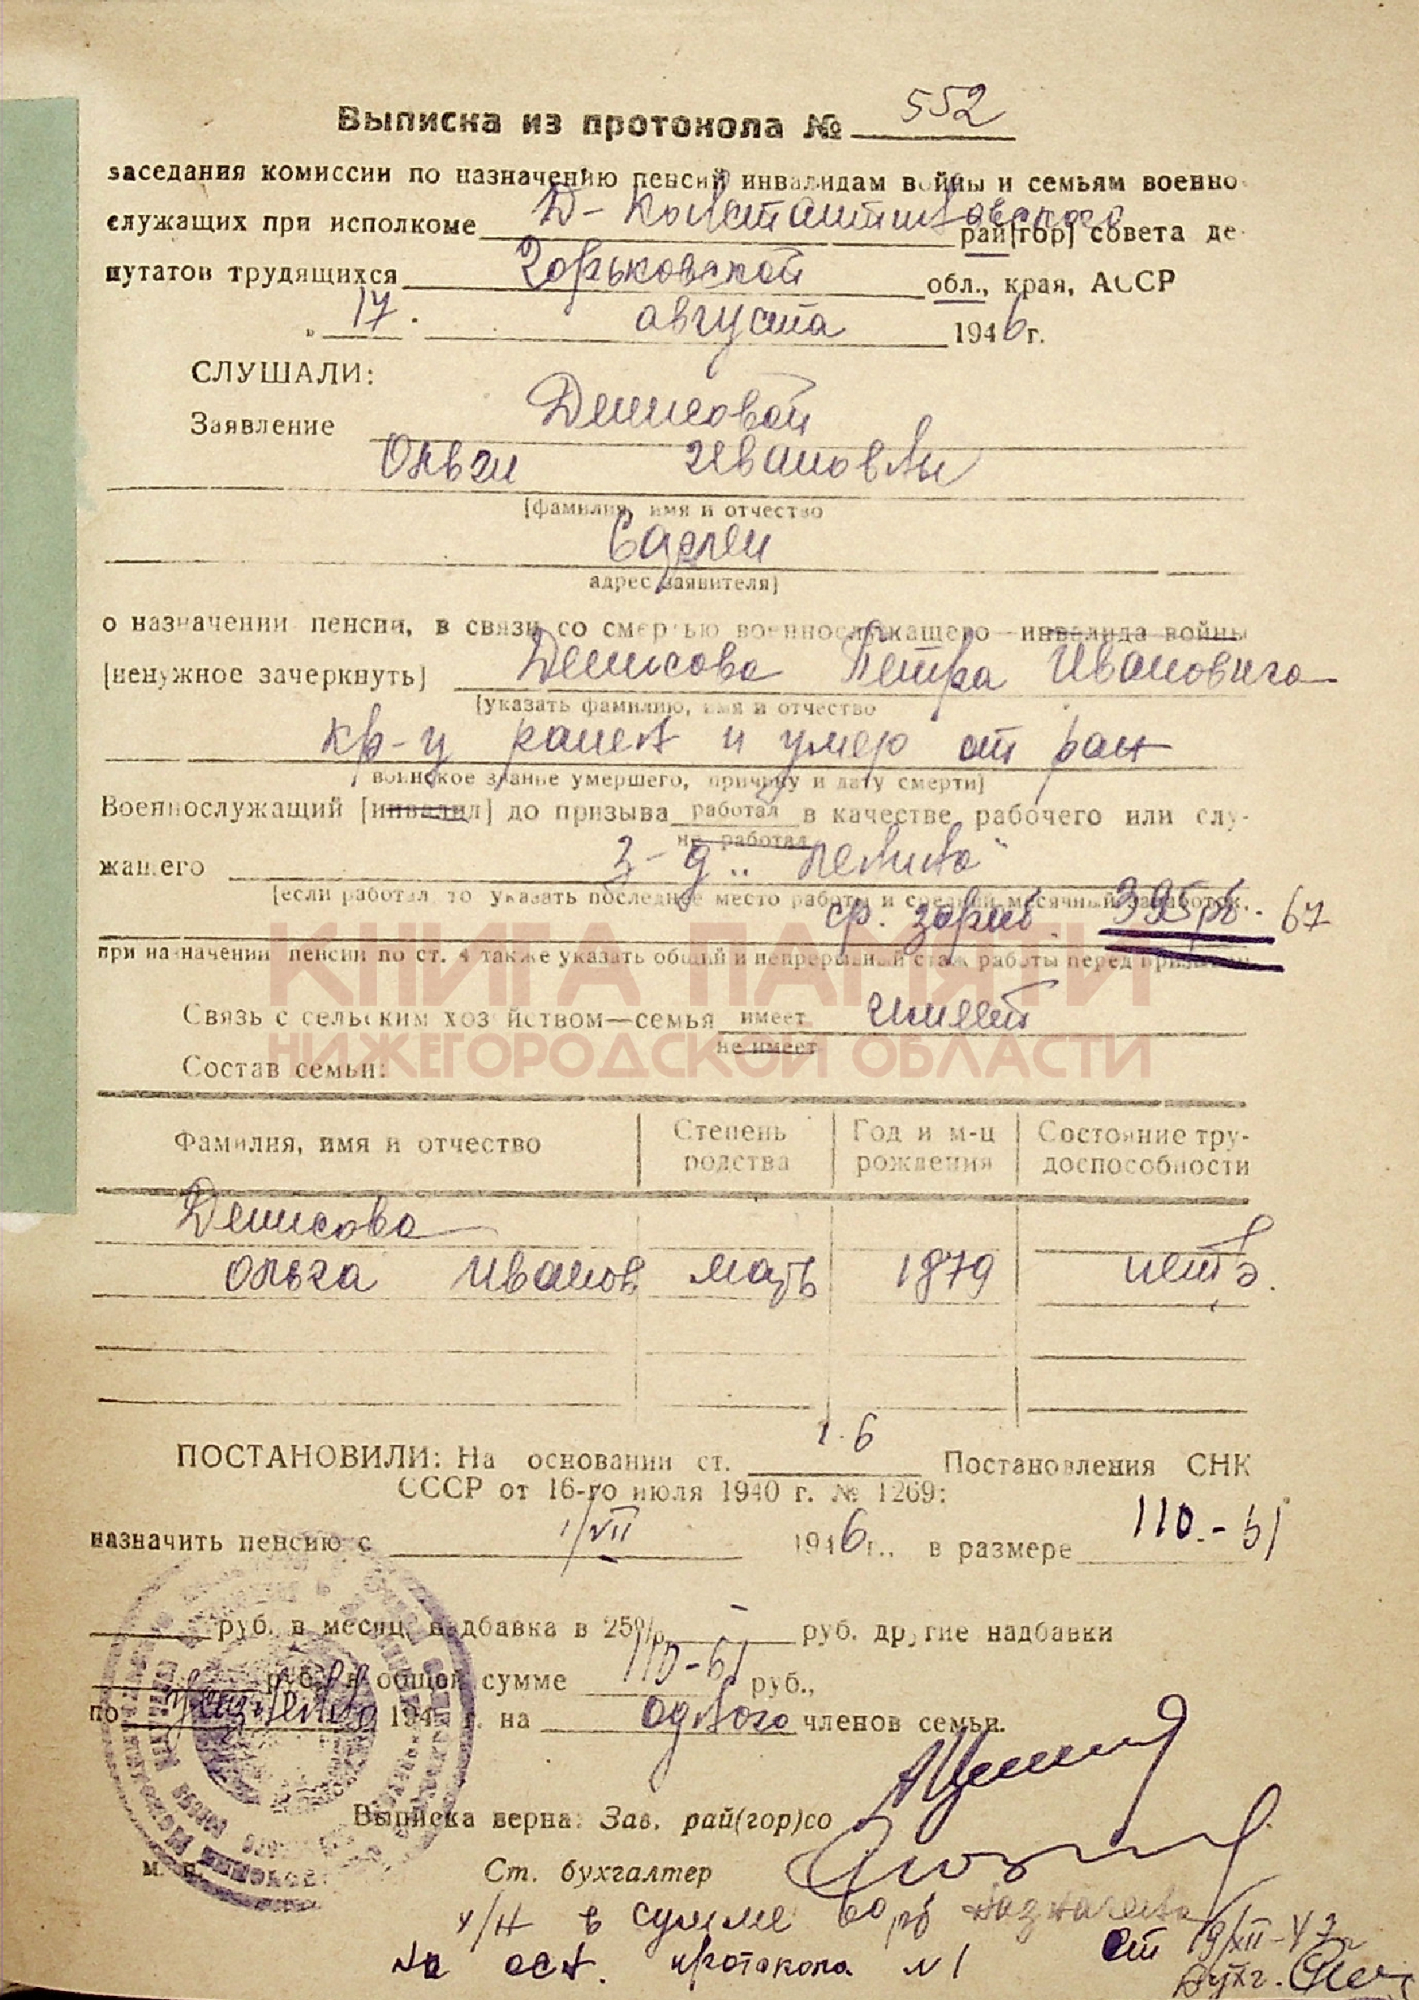 Выписка из протокола № 552
заседания комиссии по назначению пенсий инвалидам войны и семьям военно-
служащих при исполкоме Д-Константиновского рай[гор] совета де-
путатов трудящихся Горьковской обл., края, АССР
„ 17. августа 1946 г.
СЛУШАЛИ:
Заявление Денисовой
Ольги Ивановны
[фамилия, имя и отчество
адрес заявителя]
о назначении пенсии, в связи со смертью военнослужащего—инвалида войны
[ненужное зачеркнуть] Денисова Петра Ивановича
[указать фамилию, имя и отчество
кр-ц ранен и умер от ран
воинское званье умершего, причину и дату смерти]
Военнослужащий [инвалид] до призыва работал в качестве рабочего или слу-
не работал
жащего з-д „Ленина"
[если работал, то указать последнее место работы и средний месячный заработок,
ср. зараб. 395 рб. 67
при назначении пенсии по ст. 4 также указать общий и непрерывный стаж работы перед призывом
КНИГА ПАМЯТИ
НИЖЕГОРОДСКОЙ ОБЛАСТИ
Связь с сельским хозяйством—семья имеет имеет
не имеет
Состав семьи:
Фамилия, имя и отчество Степень родства Год и м-ц рождения Состояние тру-доспособности
Денисова
Ольга Иванов мать 1879 нетр.
ПОСТАНОВИЛИ: На основании ст. 1.6 Постановления СНК
СССР от 16-го июля 1940 г. № 1269:
назначить пенсию с 1/VII 1946 г., в размере 110.-51
руб. в месяц, надбавка в 25% - руб. другие надбавки
руб. в общей сумме 110-51 руб.,
по пожизненно 194 г. на одного членов семьи.
Выписка верна: Зав. рай(гор)со
м. п. Ст. бухгалтер
у/н в сумме 60 рб назначена
на осн. протокола №1 от 19/XII-47г
Бухг.